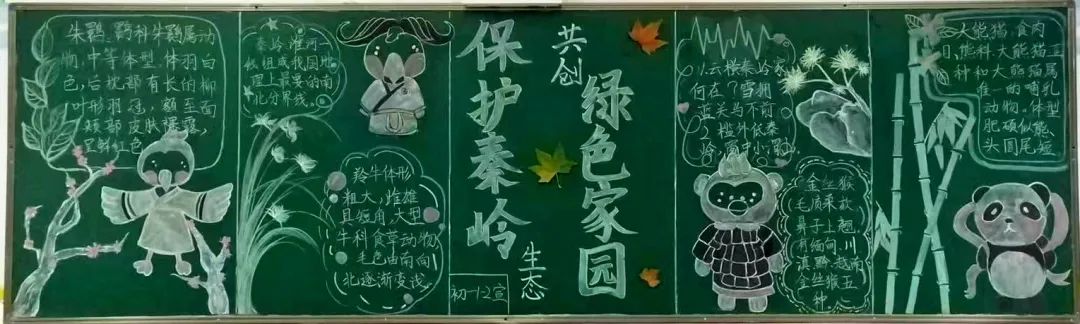 朱鹮,鹮科朱鹮属动
物,中等体型,体羽白
色,后枕部有长的柳
叶形羽冠,额至面
颊部皮肤裸露,
呈鲜红色
秦岭淮河一
级组成我国地
理上最要的南
北分界线。
羚牛体形
粗大,雌雄
且短角,大型
牛科食草动物
毛色由南向
北逐渐变浅
保护秦岭
生态
共创
绿色家园
初一2宣
1.云横秦岭家
何在?雪拥
蓝关马不前
2.槛外低秦
岭,窗中小渭
金丝猴
毛质柔软
鼻子上翘
有缅甸,川
滇黔越南
金丝猴五
种。
大熊猫,食肉
目,熊科大熊猫亚
科和大熊猫属
唯一的哺乳
动物,体型
肥硕似熊、
头圆尾短